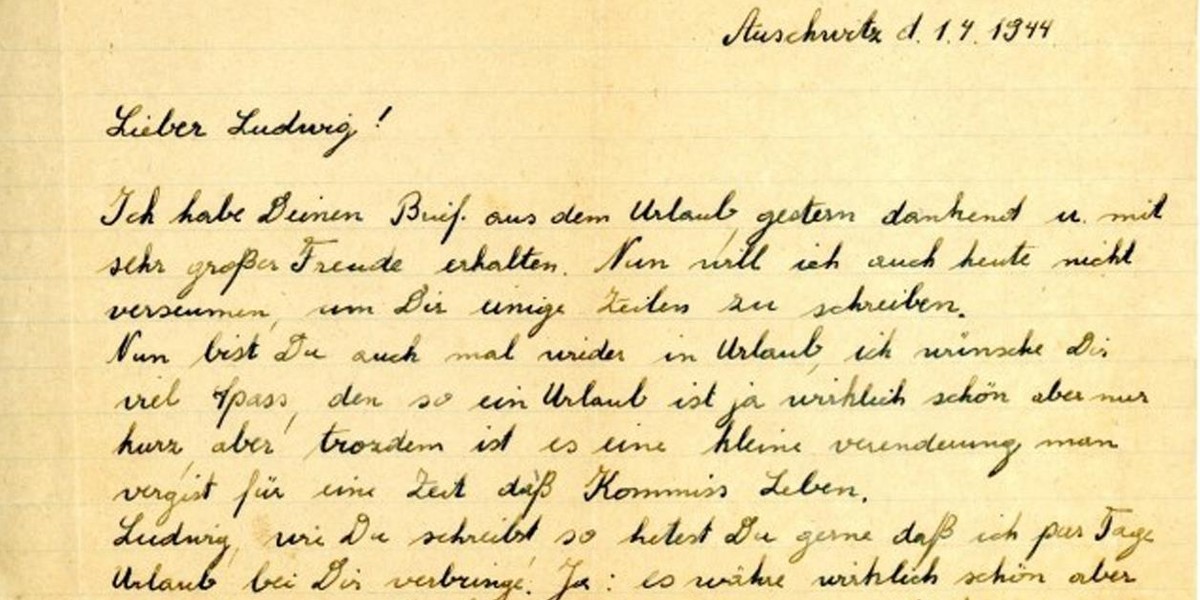 Auschwitz d. 1.4.1944
Lieber Ludwig!
Ich habe Deinen Brief. aus dem Urlaub, gestern dankend u. mit
sehr großer Freude erhalten. Nun will ich auch heute nicht
verseumen, um Dir einige Zeilen zu schreiben.
Nun bist Du auch mal wider in Urlaub, ich wünsche Dir
viel Spass, den so ein Urlaub ist ja wirklich schön aber nur
kurz, aber trozdem ist es eine kleine verenderung man
vergist für eine Zeit daß Kommiss Leben.
Ludwig, wie Du schreibst so hetest Du gerne daß ich par Tage
Urlaub bei Dir verbringe. Ja: es währe wirklich schön aber